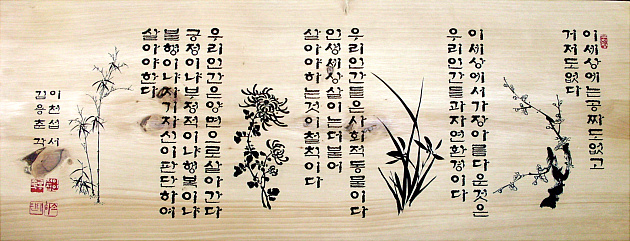 이세상에는공짜도없고
거저도없다
이세상에서가장아름다운것은
우리인간들과자연환경이다
우리인간들은사회적동물이다
인생세상살이는더불어
살아야하는것이철칙이다
우리인간은양면으로살아간다
긍정이냐부정적이냐행복이냐
불행이냐자기자신이판단하여
살아야한다
이천섭서
김응춘각